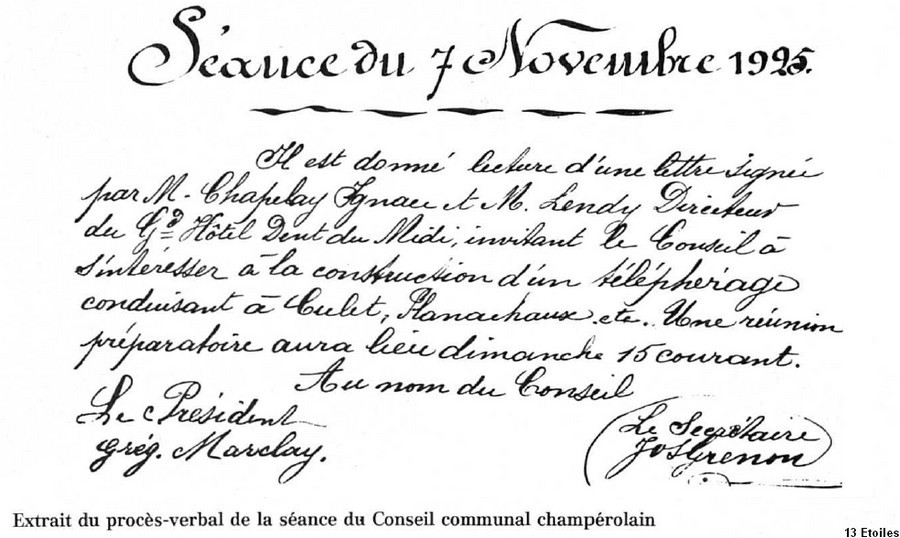 Séance du 7 Novembre 1925.
Il est donné lecture d'une lettre signée
par M. Chapelay Ignace et M. Lendy Directeur
du Gd Hôtel Dent du Midi, invitant le Conseil à
s'intéresser à la construction d'un télépherage
conduisant à Culet, Planachaux etc. Une réunion
préparatoire aura lieu dimanche 15 courant.
Au nom du Conseil
Le Président
Grég. Marclay.
Le Secrétaire
Jos Grenon
Extrait du procès-verbal de la séance du Conseil communal champérolain
13 Etoiles